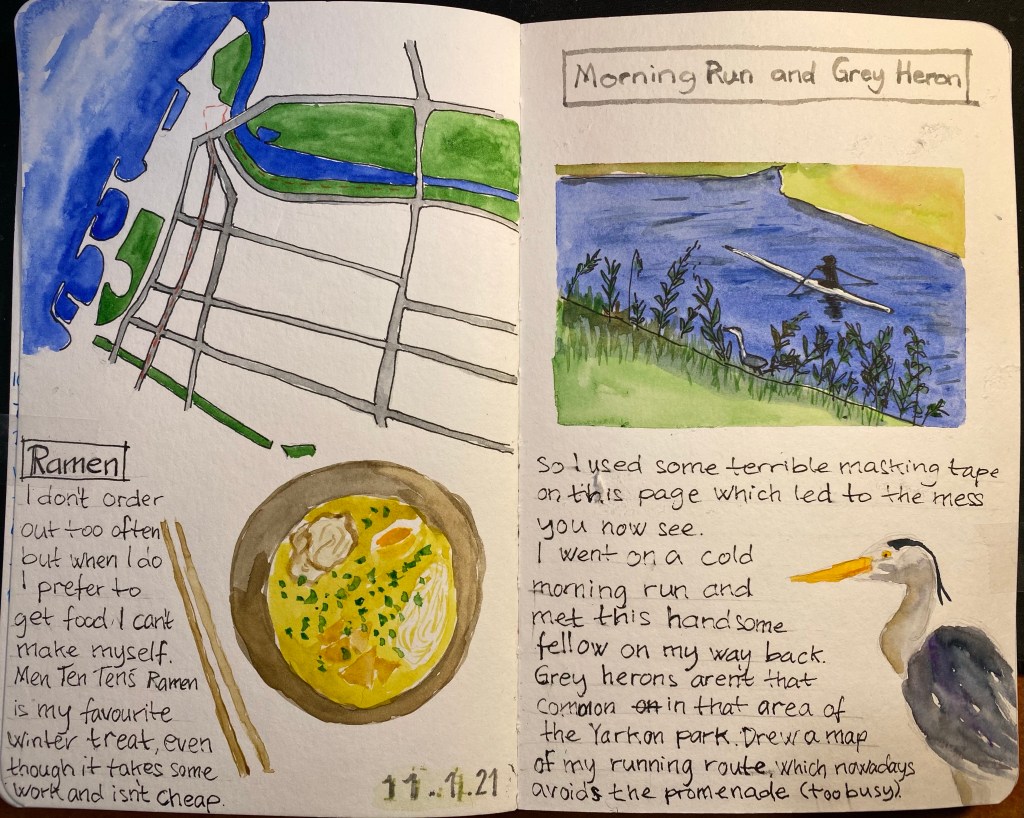 Ramen
I don't order
out too often
but when I do
I prefer to
get food I can't
make myself.
Men Ten Ten's Ramen
is my favourite
winter treat, even
though it takes some
work and isn't cheap.
11.1.21
Morning Run and Grey Heron
So I used some terrible masking tape
on this page which led to the mess
you now see.
I went on a cold
morning run and
met this handsome
fellow on my way back.
Grey herons aren't that
common on in that area of
the Yarkon park. Drew a map
of my running route, which nowadays
avoids the promenade (too busy).